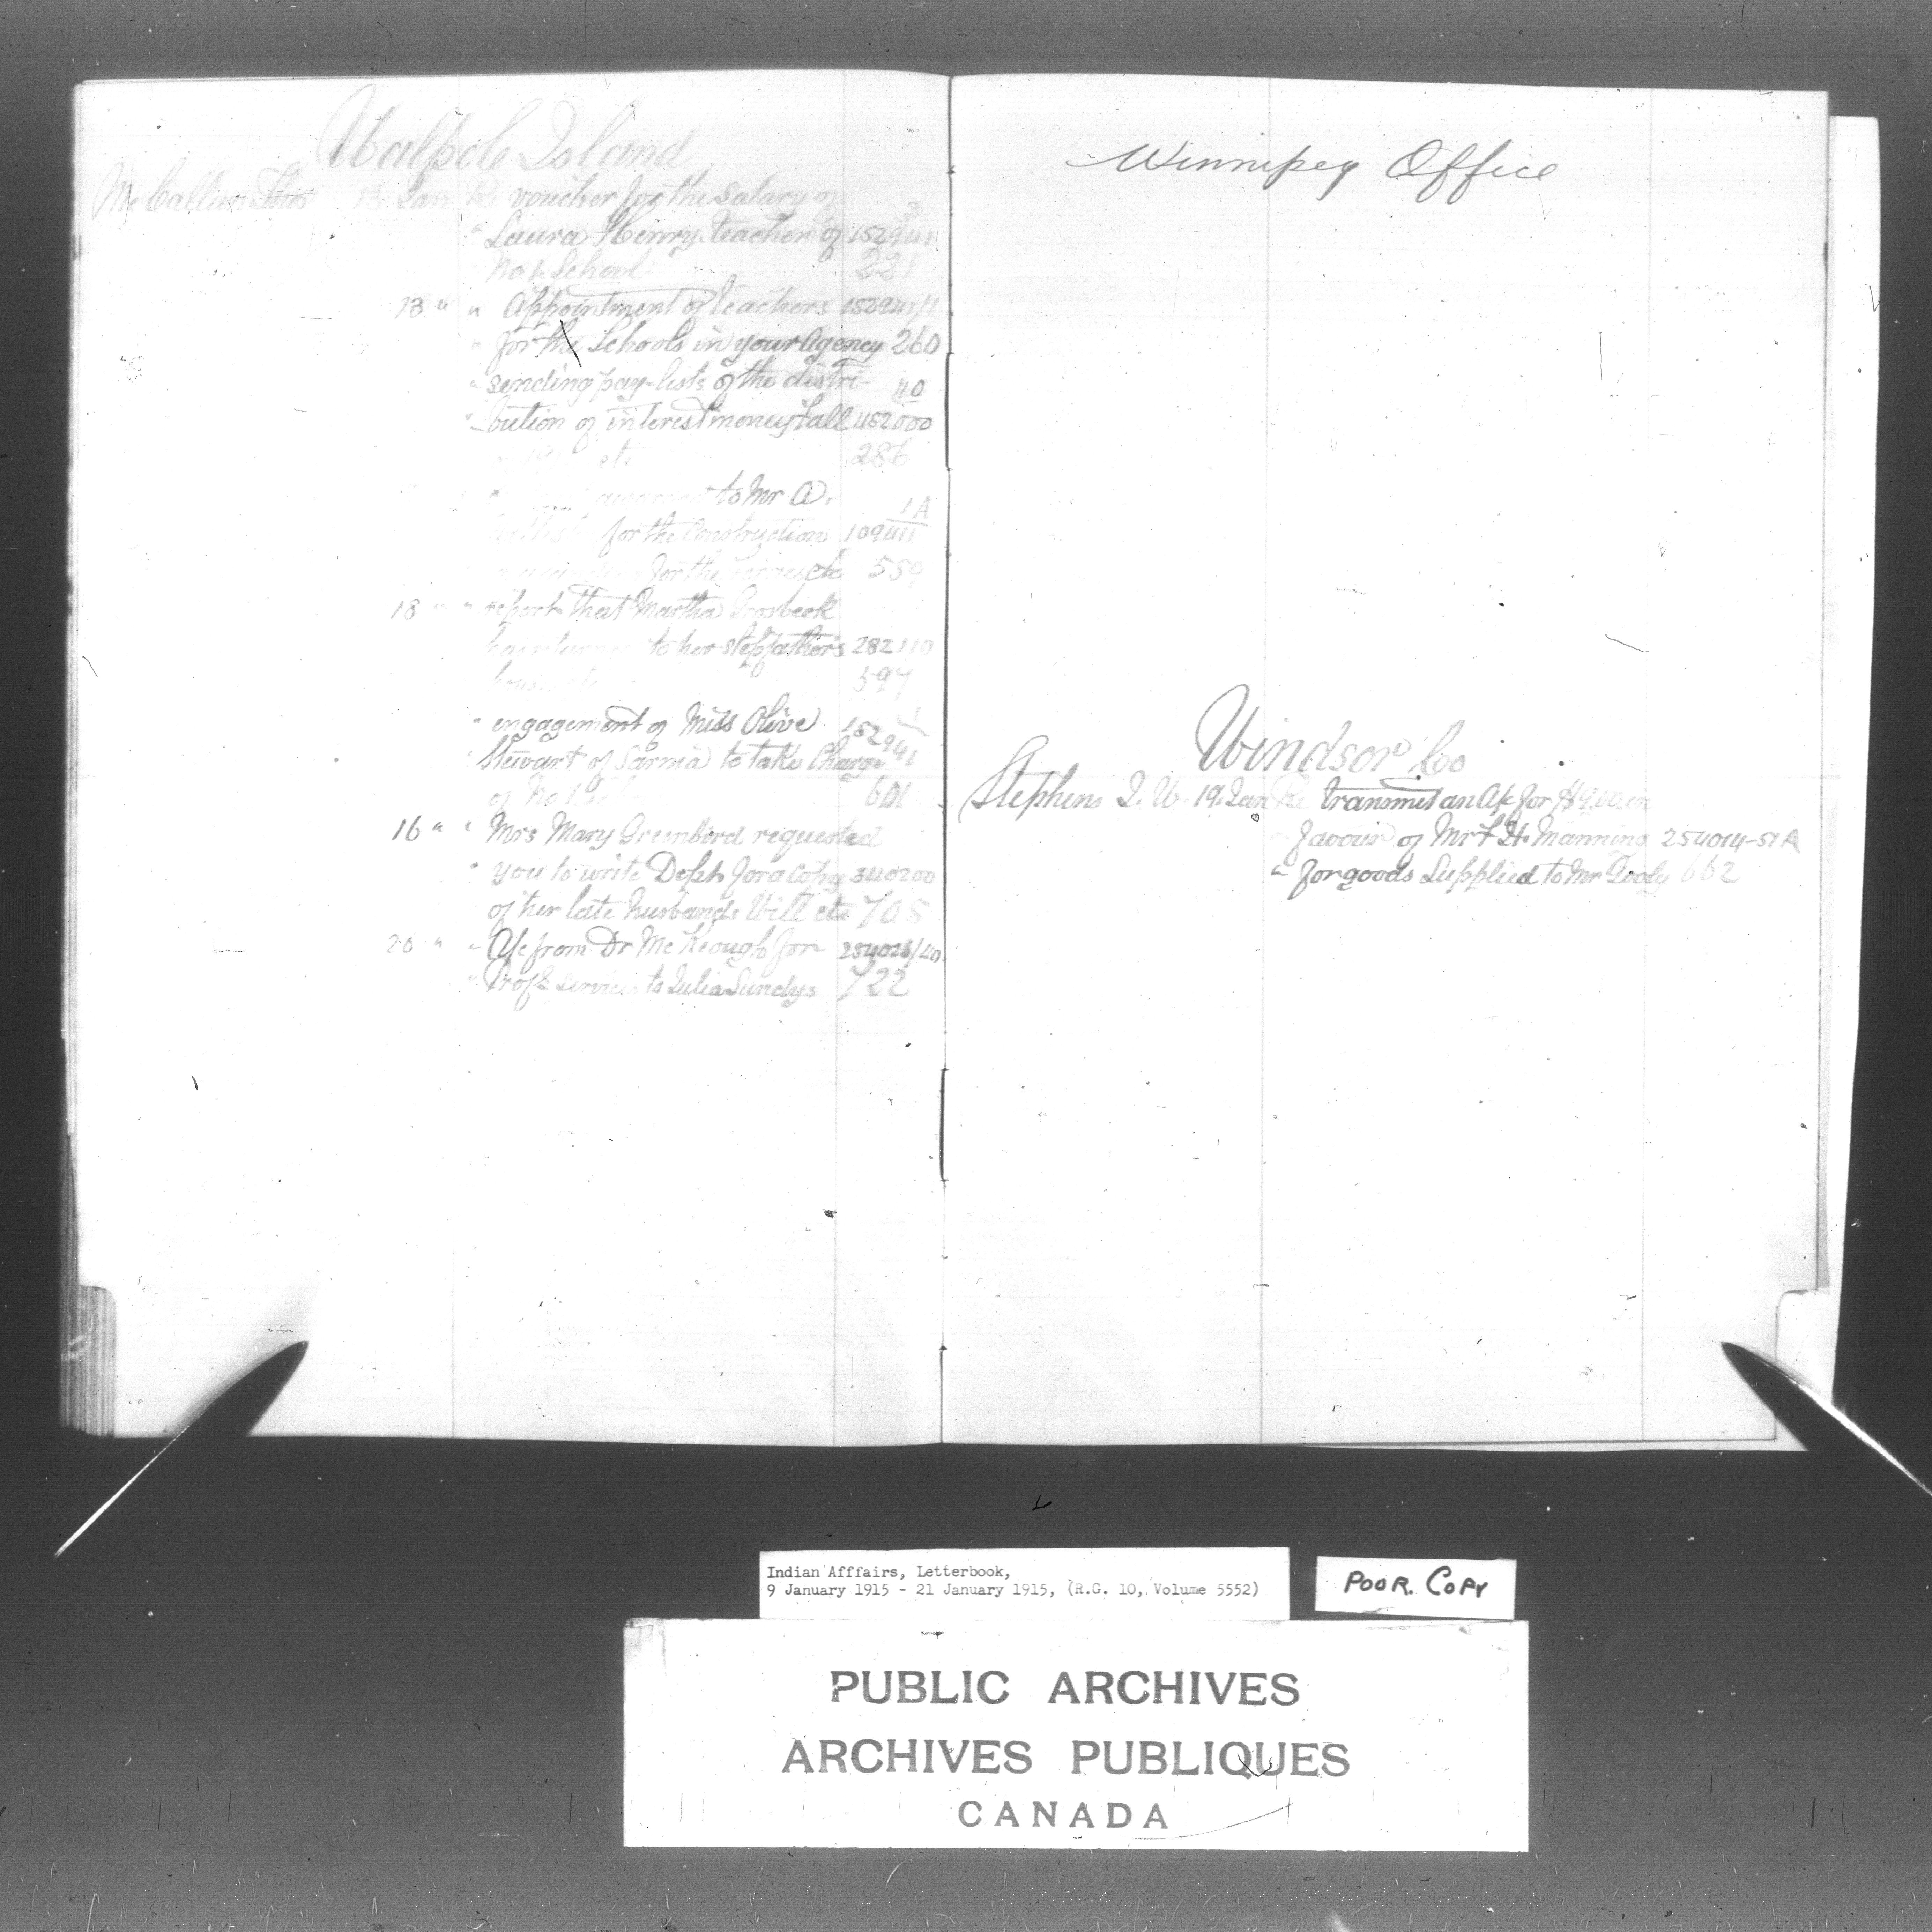 Walpole Island
McCallum Thos 13 Jan Re voucher for the salary of 3
" Laura Henry teacher of 152941
No 1 School 221
13 " " Appointment of teachers 152941/1
" for the Schools in your Agency 260
" sending pay-lists of the distri- 40
" bution of interest money fall 452000
etc 286
to Mr A. 1A
for the Construction 109411
for the etc 559
18 " " report that Martha Grosbeck
to her stepfather's 282110
597
" engagement of Miss Olive 1
" Stewart of Sarnia to take Charge 152941
of No 1 601
16 " " Mrs Mary Greenbird requested
" you to write Dept for a Copy 340200
of her late husbands Will etc 705
20 " " A/c from Dr McKeough for 254026/40
" Prof'l services to Julia Sundys 722
Winnipeg Office
Windsor Co
Stephens 19 Jan Re transmit an A/c for $9.00 in
favour of Mr F. H. Manning 254014-51A
" for goods Supplied to Mr 662
Indian Afffairs, Letterbook,
9 January 1915 - 21 January 1915, (R.G. 10, Volume 5552)
POOR. COPY
PUBLIC ARCHIVES
ARCHIVES PUBLIQUES
CANADA